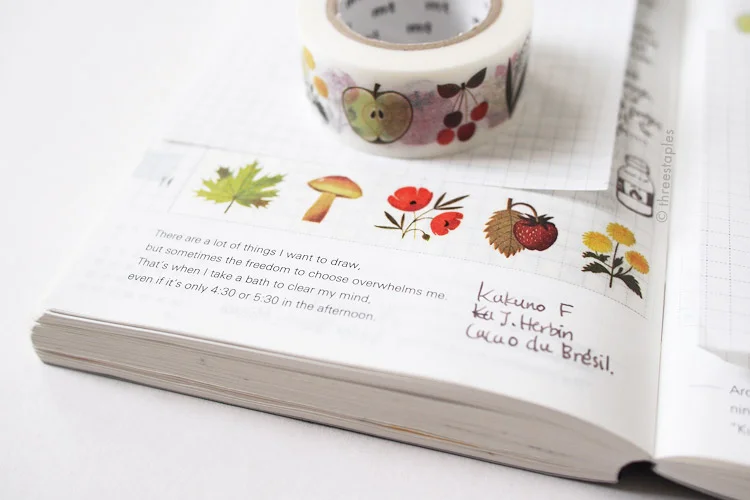 mt
© threestaples
There are a lot of things I want to draw,
but sometimes the freedom to choose overwhelms me.
That's when I take a bath to clear my mind,
even if it's only 4:30 or 5:30 in the afternoon.
Kakuno F
J. Herbin
Cacao du Brésil.